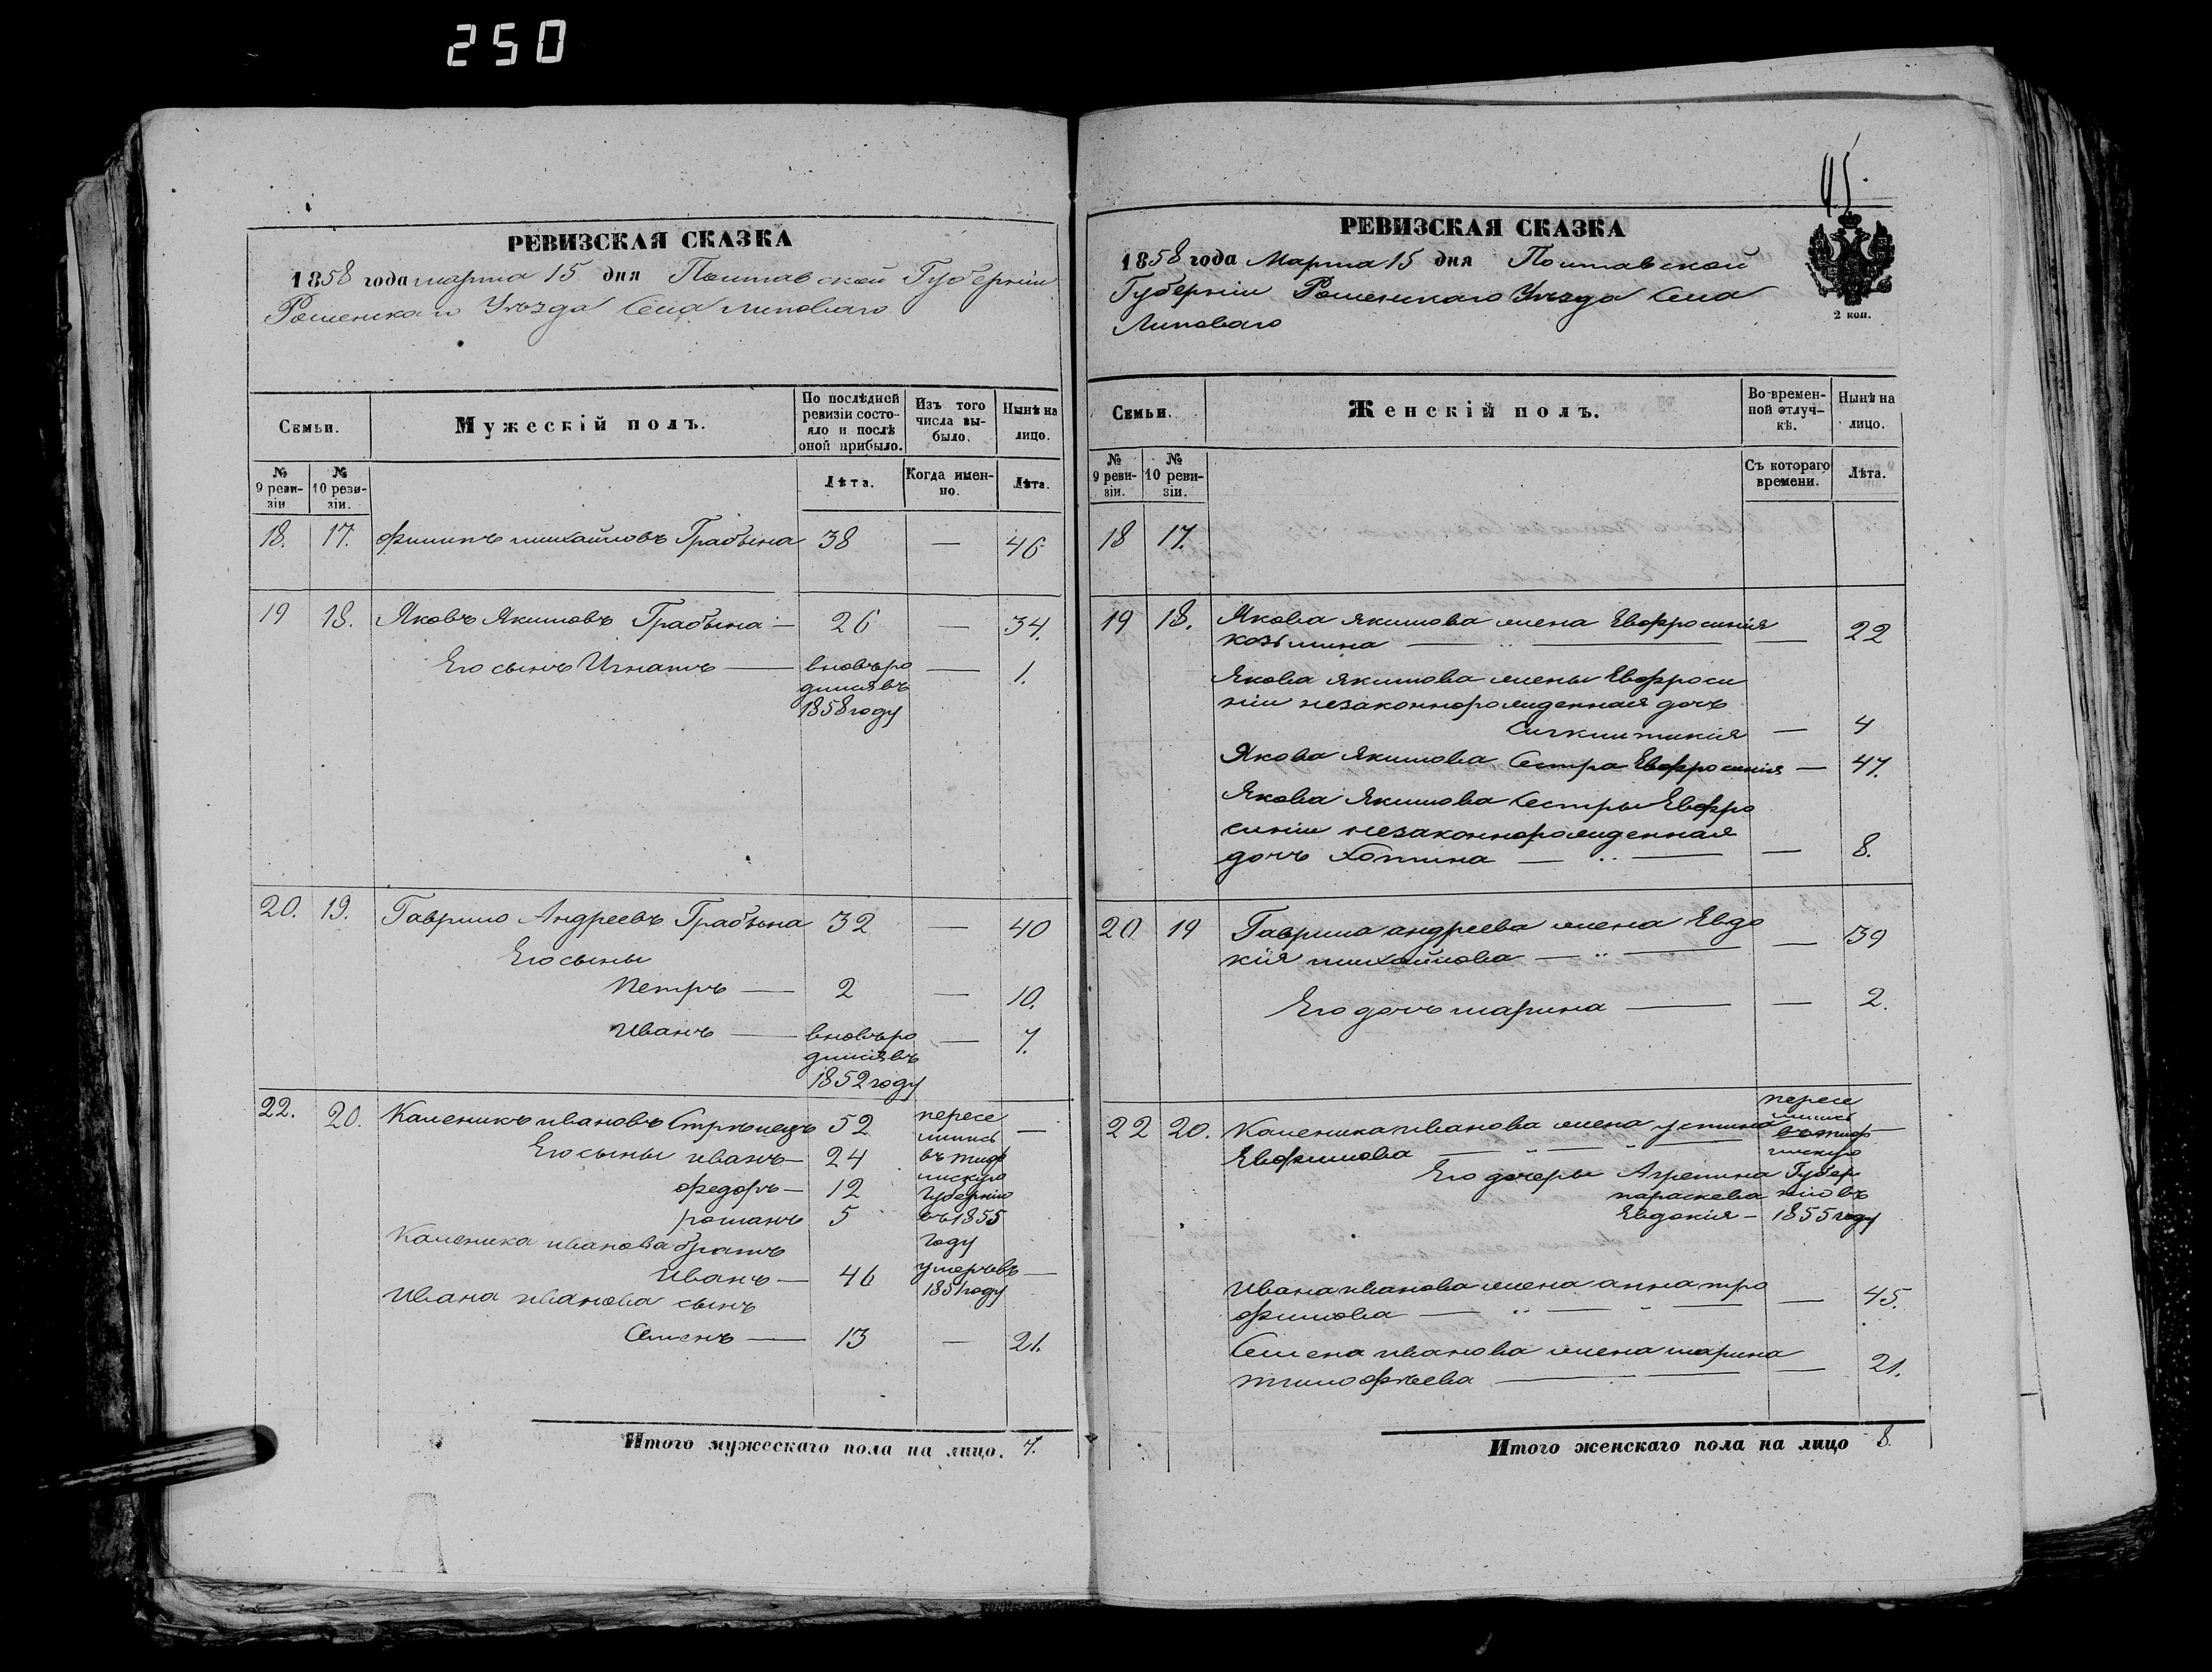 250
РЕВИЗСКАЯ СКАЗКА
1858 года марта 15 дня Полтавской Губерніи
Роменскаго Уѣзда Села Липоваго
Семьи.
Мужескій полъ.
По послѣдней ревизіи состояло и послѣ оной прибыло.
Изъ того числа выбыло.
Нынѣ на лицо.
№ 9 ревизіи
№ 10 ревизіи.
Лѣта.
Когда именно.
Лѣта.
18. 17. Филипъ михайловъ Грабына 38 — 46
19 18. Яковъ Якимовъ Грабына — 26 — 34.
Его сынъ Игнатъ — вновь ро — 1.
дился въ
1858 году
20. 19. Гаврило Андреевъ Грабына 32 — 40
Его сыны
Петръ — 2 — 10.
Иванъ — вновь ро — 7.
дился въ
1852 году
22. 20. Каленикъ ивановъ Стрѣлецъ 52 пересе —
лились
Его сыны иванъ — 24 въ тиф
лискую
федоръ — 12 Губернію
романъ 5 въ 1855
году
Каленика иванова братъ
Иванъ — 46 умеръ въ —
1851 году
Ивана иванова сынъ
Семенъ — 13 — 21.
Итого мужескаго пола на лицо. 7.
45.
РЕВИЗСКАЯ СКАЗКА
1858 года Марта 15 дня Полтавской
Губерніи Роменскаго Уѣзда Села
Липоваго
2 коп.
Семьи.
Женскій полъ.
Во временной отлучкѣ.
Нынѣ на лицо.
№ 9 ревизіи.
№ 10 ревизіи.
Съ котораго времени.
Лѣта.
18 17.
19 18. Якова Якимова жена Евфросинія
козьмина — — 22
Якова Якимова жены Евфроси
ніи незаконнорожденная дочь
— 4
Якова Якимова Сестра Евфросинія — 47.
Якова Якимова Сестры Евфро
синіи незаконнорожденная
дочь — — 8.
20 19 Гаврила андреева жена Евдо
кія михайлова — — 39
Его дочь марина — — 2.
22 20. Каленика иванова жена устина
Евфимова —
пересе
лились
въ тиф
лискую
Его дочеры Агрепина Губер
параскева нію въ
Евдокія — 1855 году
Ивана иванова жена анна тро
фимова — — 45.
Семена иванова жена марина
тимофѣева — 21.
Итого женскаго пола на лицо 8.